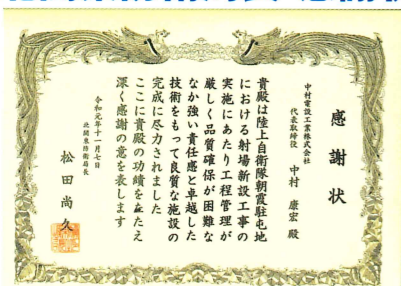 感謝状
中村電設工業株式会社
代表取締役 中村 康宏 殿
貴殿は陸上自衛隊朝霞駐屯地
における射場新設工事の
実施にあたり工程管理が
厳しく品質確保が困難な
なか強い責任感と卓越した
技術をもって良質な施設の
完成に尽力されました
ここに貴殿の功績をたたえ
深く感謝の意を表します
令和元年十一月七日
北関東防衛局長
松田尚久